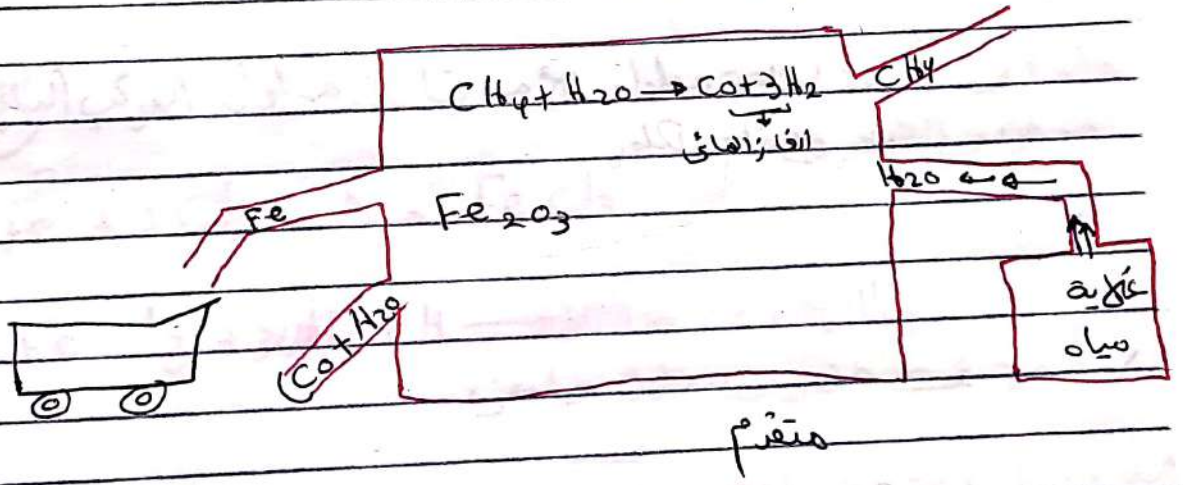 CH4 + H2O → CO + 3H2
الغاز المائي
CH4
H2O
Fe
Fe2O3
CO + H2O
غلاية
مياه